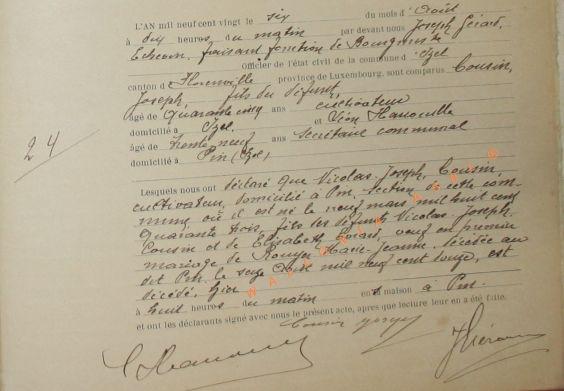 L'AN mil neuf cent vingt le six du mois d'Août
à dix heures du matin par devant nous Joseph Gérard
Echevin, faisant fonction de Bourgmestre
Officier de l'état civil de la commune d'Izel
canton d Florenville province de Luxembourg, sont comparus Cousin,
Joseph, fils du défunt,
âgé de quarante cinq ans cultivateur
domicilié à Izel. et Léon Hanoulle
âgé de trente neuf ans secrétaire communal
domicilié à Pin (Izel)
24
Lesquels nous ont déclaré que Nicolas-Joseph, Cousin,
cultivateur, domicilié à Pin, section de cette com-
mune où il est né le neuf mars mil huit cent
quarante trois, fils des défunts Nicolas-Joseph
Cousin et de Elisabeth Gérard, veuf en premier
mariage de Marie-Jeanne, décédée au
dit Pin le seize mil neuf cent douze, est
décédé, hier
à huit heures du matin en sa maison à Pin.
et ont les déclarants signé avec nous le présent acte, après que lecture leur en a été faite.
Cousin